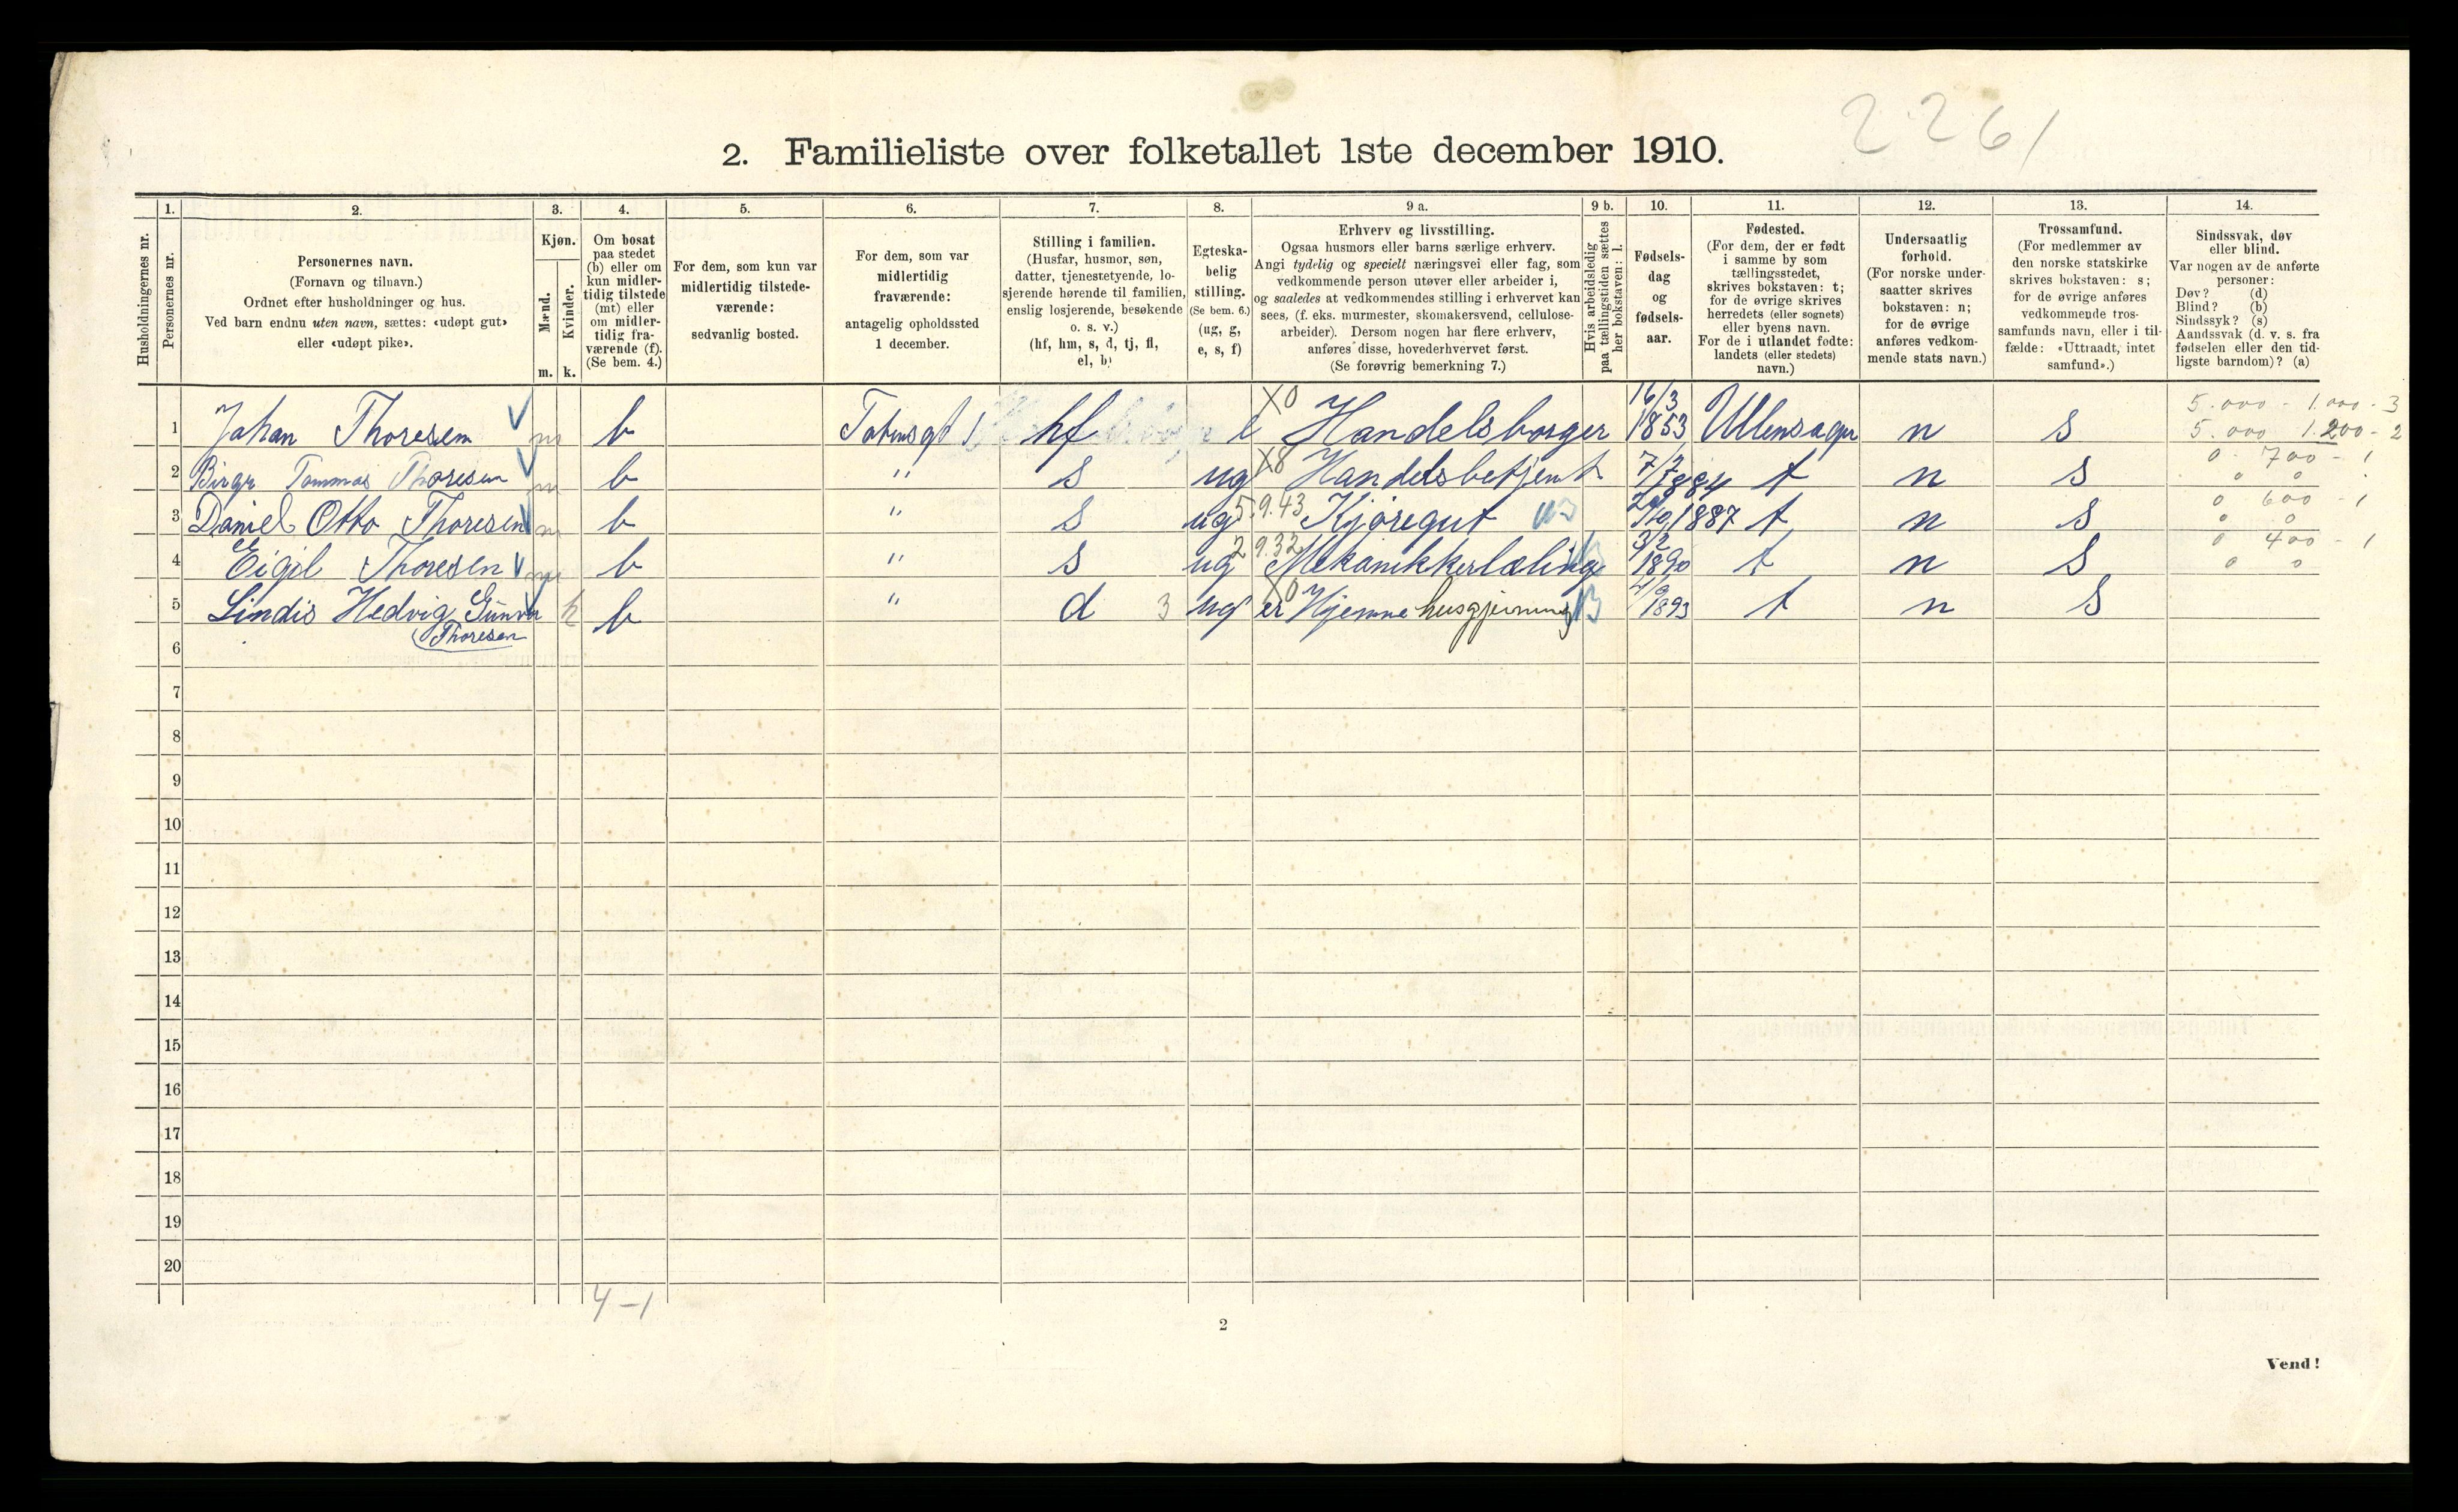 2261
2. Familieliste over folketallet 1ste december 1910.
Husholdningernes nr.
1. Personernes nr.
2. Personernes navn. (Fornavn og tilnavn.) Ordnet efter husholdninger og hus. Ved barn endnu uten navn, sættes: «udøpt gut» eller «udøpt pike».
3. Kjøn. Mænd. m. Kvinder. k.
4. Om bosat paa stedet (b) eller om kun midlertidig tilstede (mt) eller om midlertidig fraværende (f). (Se bem. 4.)
5. For dem, som kun var midlertidig tilstedeværende: sedvanlig bosted.
6. For dem, som var midlertidig fraværende: antagelig opholdssted 1 december.
7. Stilling i familien. (Husfar, husmor, søn, datter, tjenestetyende, losjerende hørende til familien, enslig losjerende, besøkende o. s. v.) (hf, hm, s, d, tj, fl, el, b)
8. Egteskabelig stilling. (Se bem. 6.) (ug, g, e, s, f)
9 a. Erhverv og livsstilling. Ogsaa husmors eller barns særlige erhverv. Angi tydelig og specielt næringsvei eller fag, som vedkommende person utøver eller arbeider i, og saaledes at vedkommendes stilling i erhvervet kan sees, (f. eks. murmester, skomakersvend, cellulosearbeider). Dersom nogen har flere erhverv, anføres disse, hovederhvervet først. (Se forøvrig bemerkning 7.)
9 b. Hvis arbeidsledig paa tællingstiden sættes her bokstaven: l.
10. Fødselsdag og fødselsaar.
11. Fødested. (For dem, der er født i samme by som tællingsstedet, skrives bokstaven: t; for de øvrige skrives herredets (eller sognets) eller byens navn. For de i utlandet fødte: landets (eller stedets) navn.)
12. Undersaatlig forhold. (For norske undersaatter skrives bokstaven: n; for de øvrige anføres vedkommende stats navn.)
13. Trossamfund. (For medlemmer av den norske statskirke skrives bokstaven: s; for de øvrige anføres vedkommende trossamfunds navn, eller i tilfælde: «Uttraadt, intet samfund».)
14. Sindssvak, døv eller blind. Var nogen av de anførte personer: Døv? (d) Blind? (b) Sindssyk? (s) Aandssvak (d. v. s. fra fødselen eller den tidligste barndom)? (a)
1 Johan Thoresen m b hf e X0 Handelsborger 16/3 1853 n s 5.000 - 1.000 - 3
5.000 1.200 - 2
2 Birger Tommas Thoresen m b " s ug X8 Handelsbetjent 7/7 1884 t n s 0 700 - 1
3 Daniel Otto Thoresen m b " s ug 5.9.43 Kjøregut 1887 t n s 0 600 - 1
0 0
4 Eigil Thoresen m b " s ug 2 9.32 Mekanikkerlæling 3/2 1890 t n s 0 400 - 1
0 0
5 Lindis Hedvig Gunvor k b " d 3 ug er X0 Hjemme husgjerning 1893 t n s
Thoresen
6
7
8
9
10
11
12
13
14
15
16
17
18
19
20
4 - 1
2
Vend!